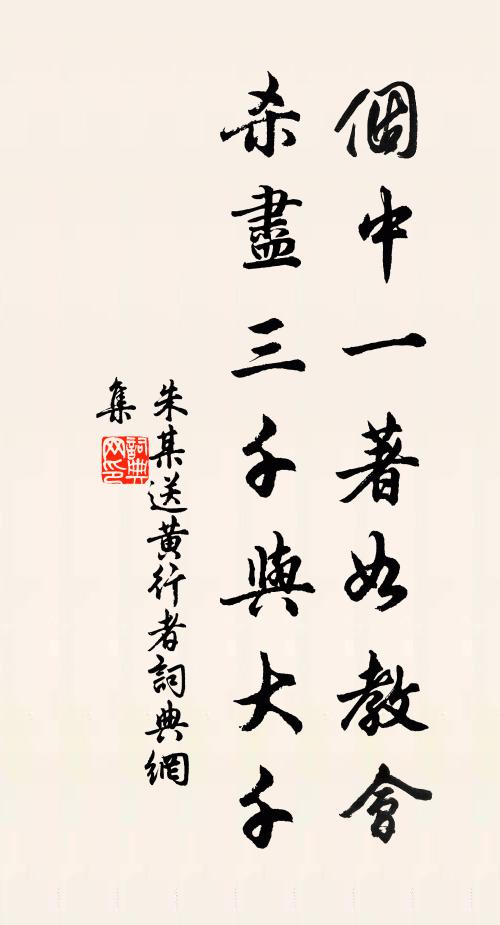 個中一著如教會
杀盡三千與大千
朱某送黄行者詞典網
集
詞典网印